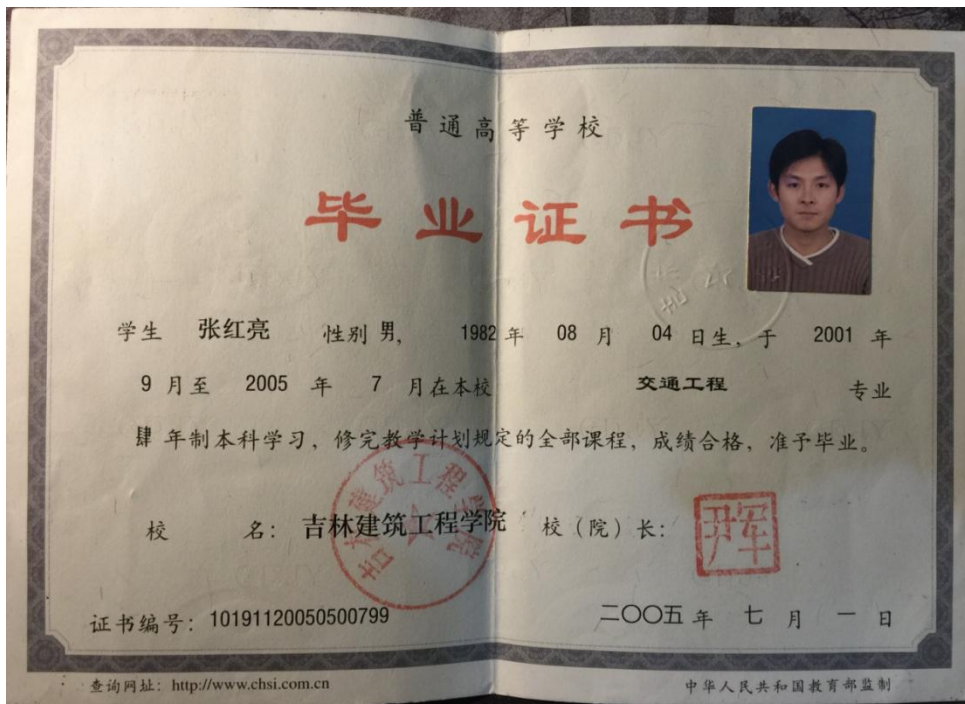 普通高等学校
毕业证书
学生 张红亮 性别 男, 1982 年 08 月 04 日生, 于 2001 年
9 月至 2005 年 7 月在本校 交通工程 专业
肆 年制本科学习, 修完教学计划规定的全部课程, 成绩合格, 准予毕业。
校 名: 吉林建筑工程学院 校(院)长: 尹军
吉林建筑工程学院
证书编号: 10191120050500799 二〇〇五年 七 月 一 日
查询网址: http://www.chsi.com.cn 中华人民共和国教育部监制